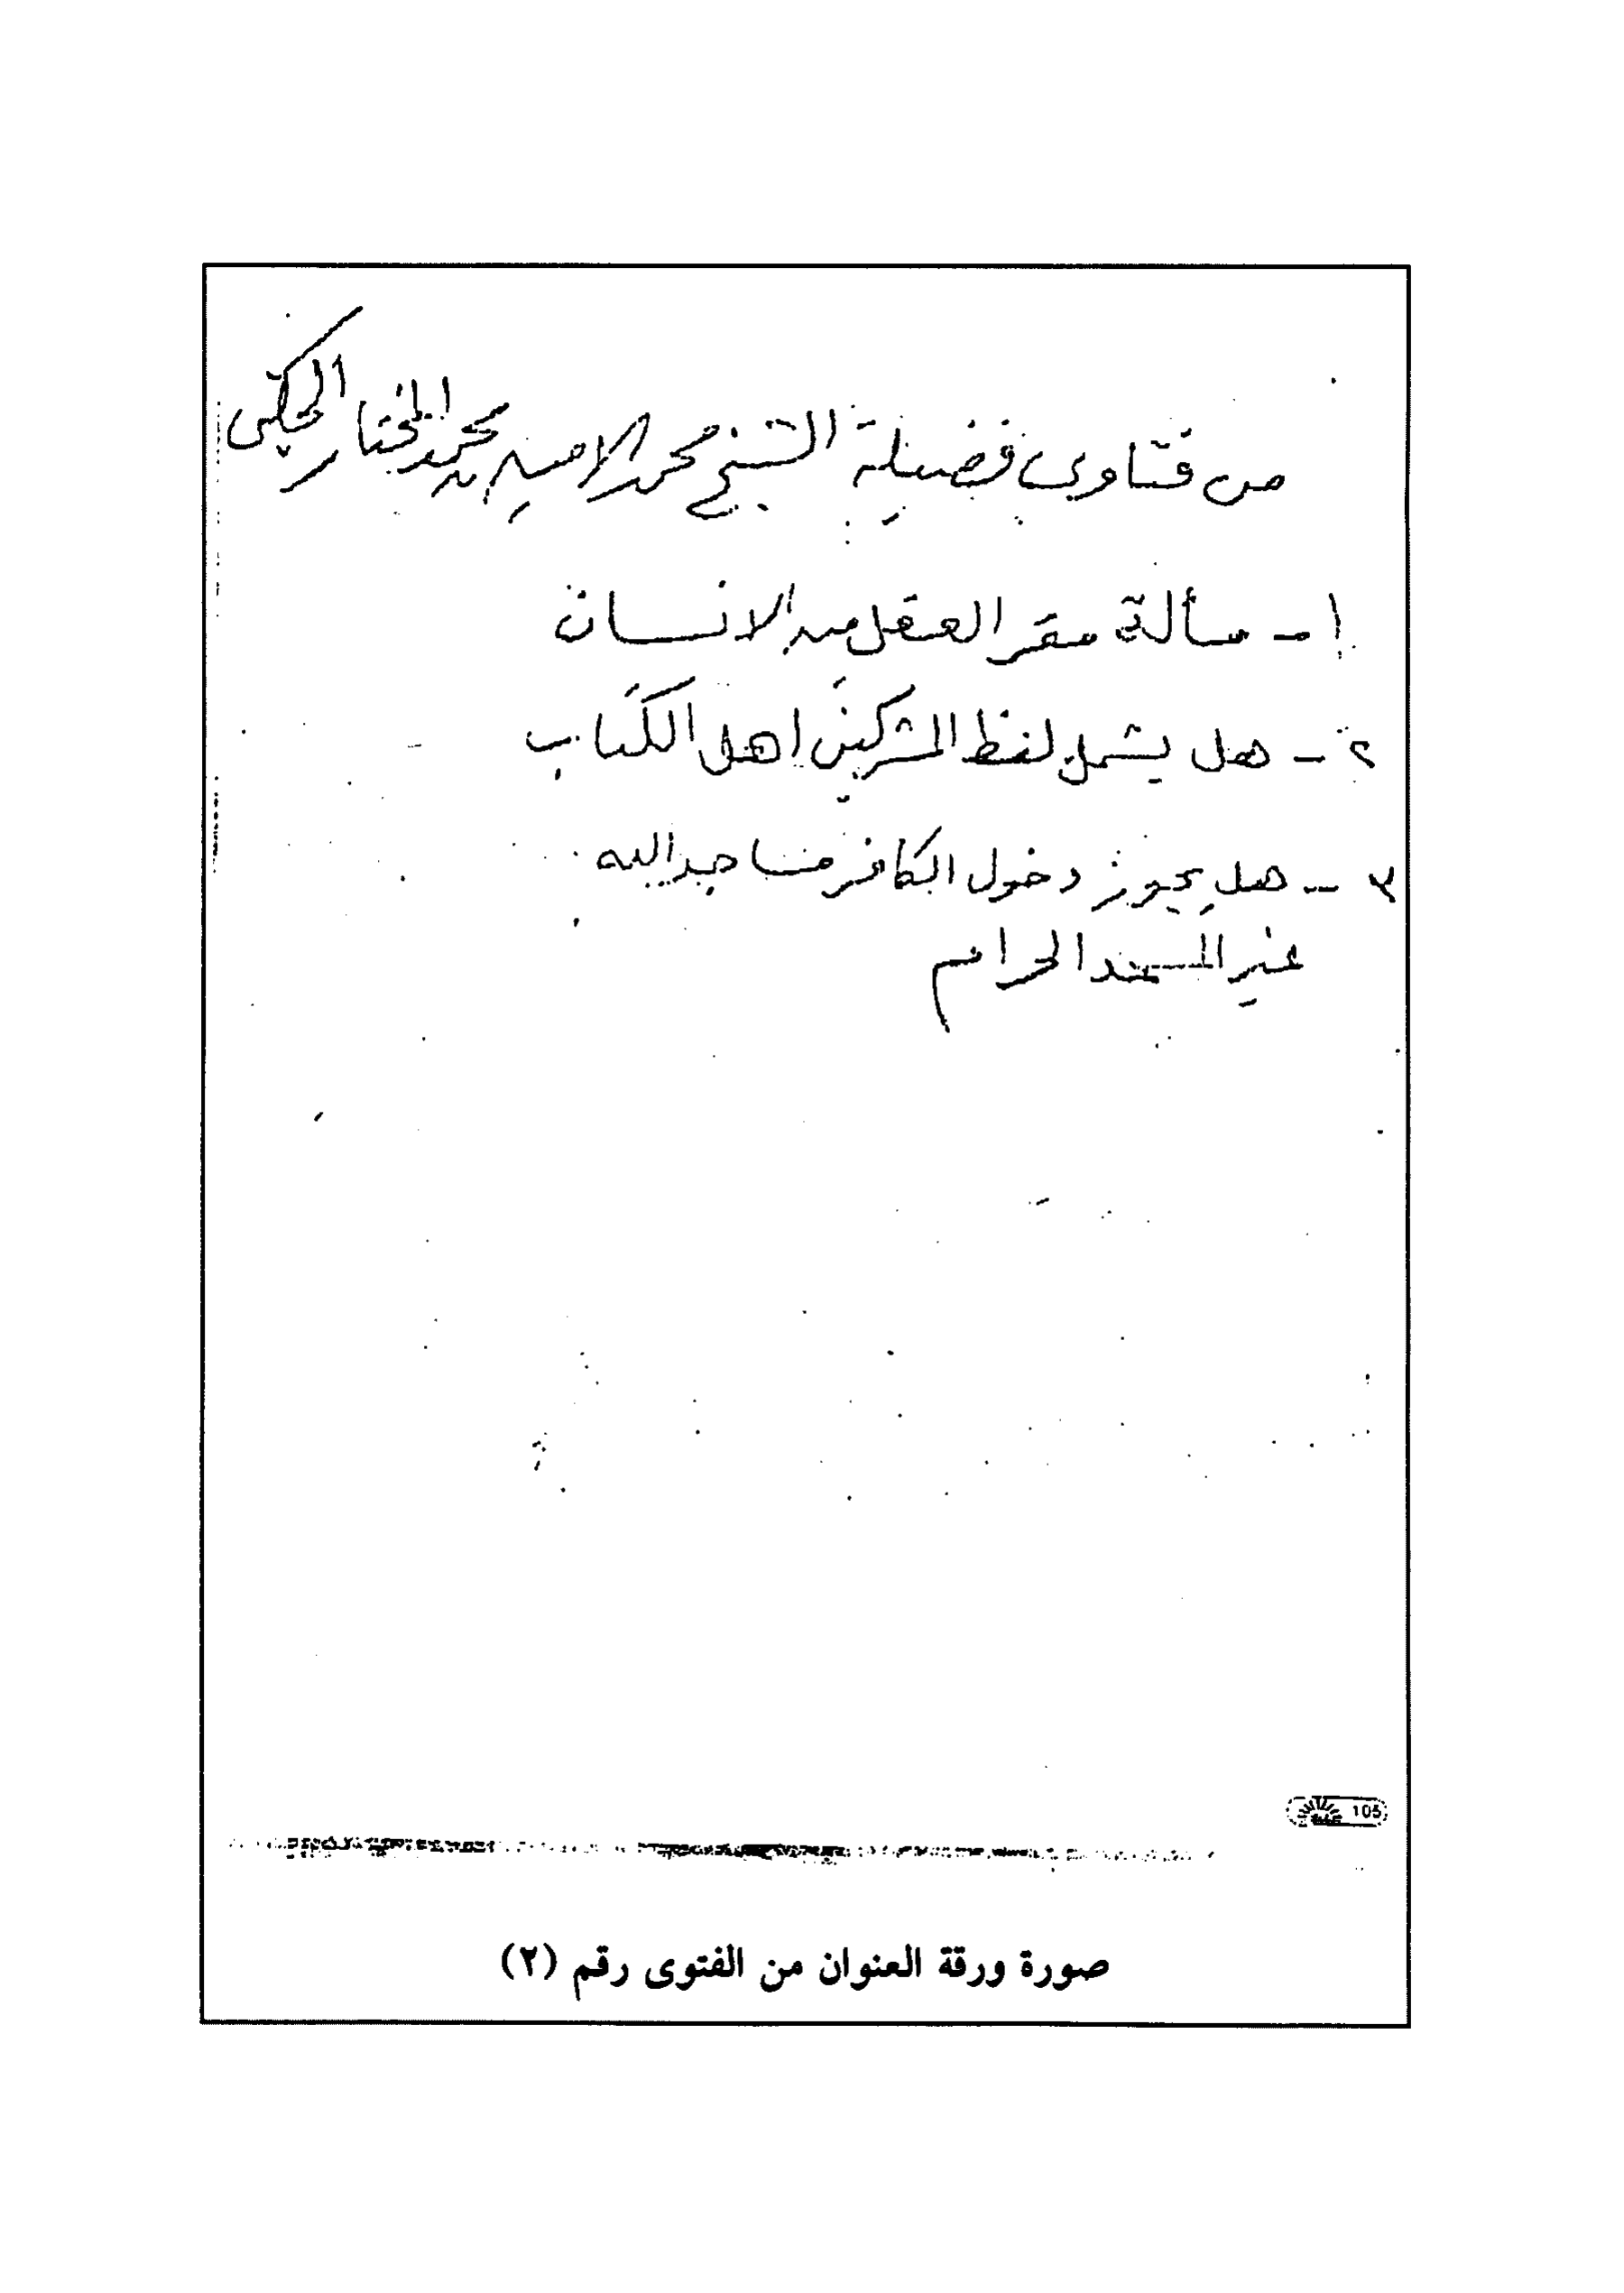 من فتاوى فضيلة الشيخ محمد الامين بن محمد المختار الجكني
١ - مسألة مقر العقل من الانسان
٢ - هل يشمل لفظ المشركين اهل الكتاب
٣ - هل يجوز دخول الكافر مساجد الله
غير المسجد الحرام
105
صورة ورقة العنوان من الفتوى رقم (٢)